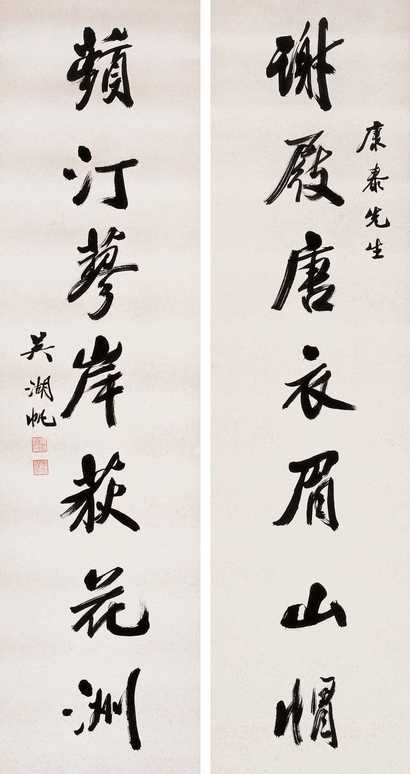 康泰先生
謝屐唐衣眉山帽
蘋汀蓼岸荻花洲
吳湖帆